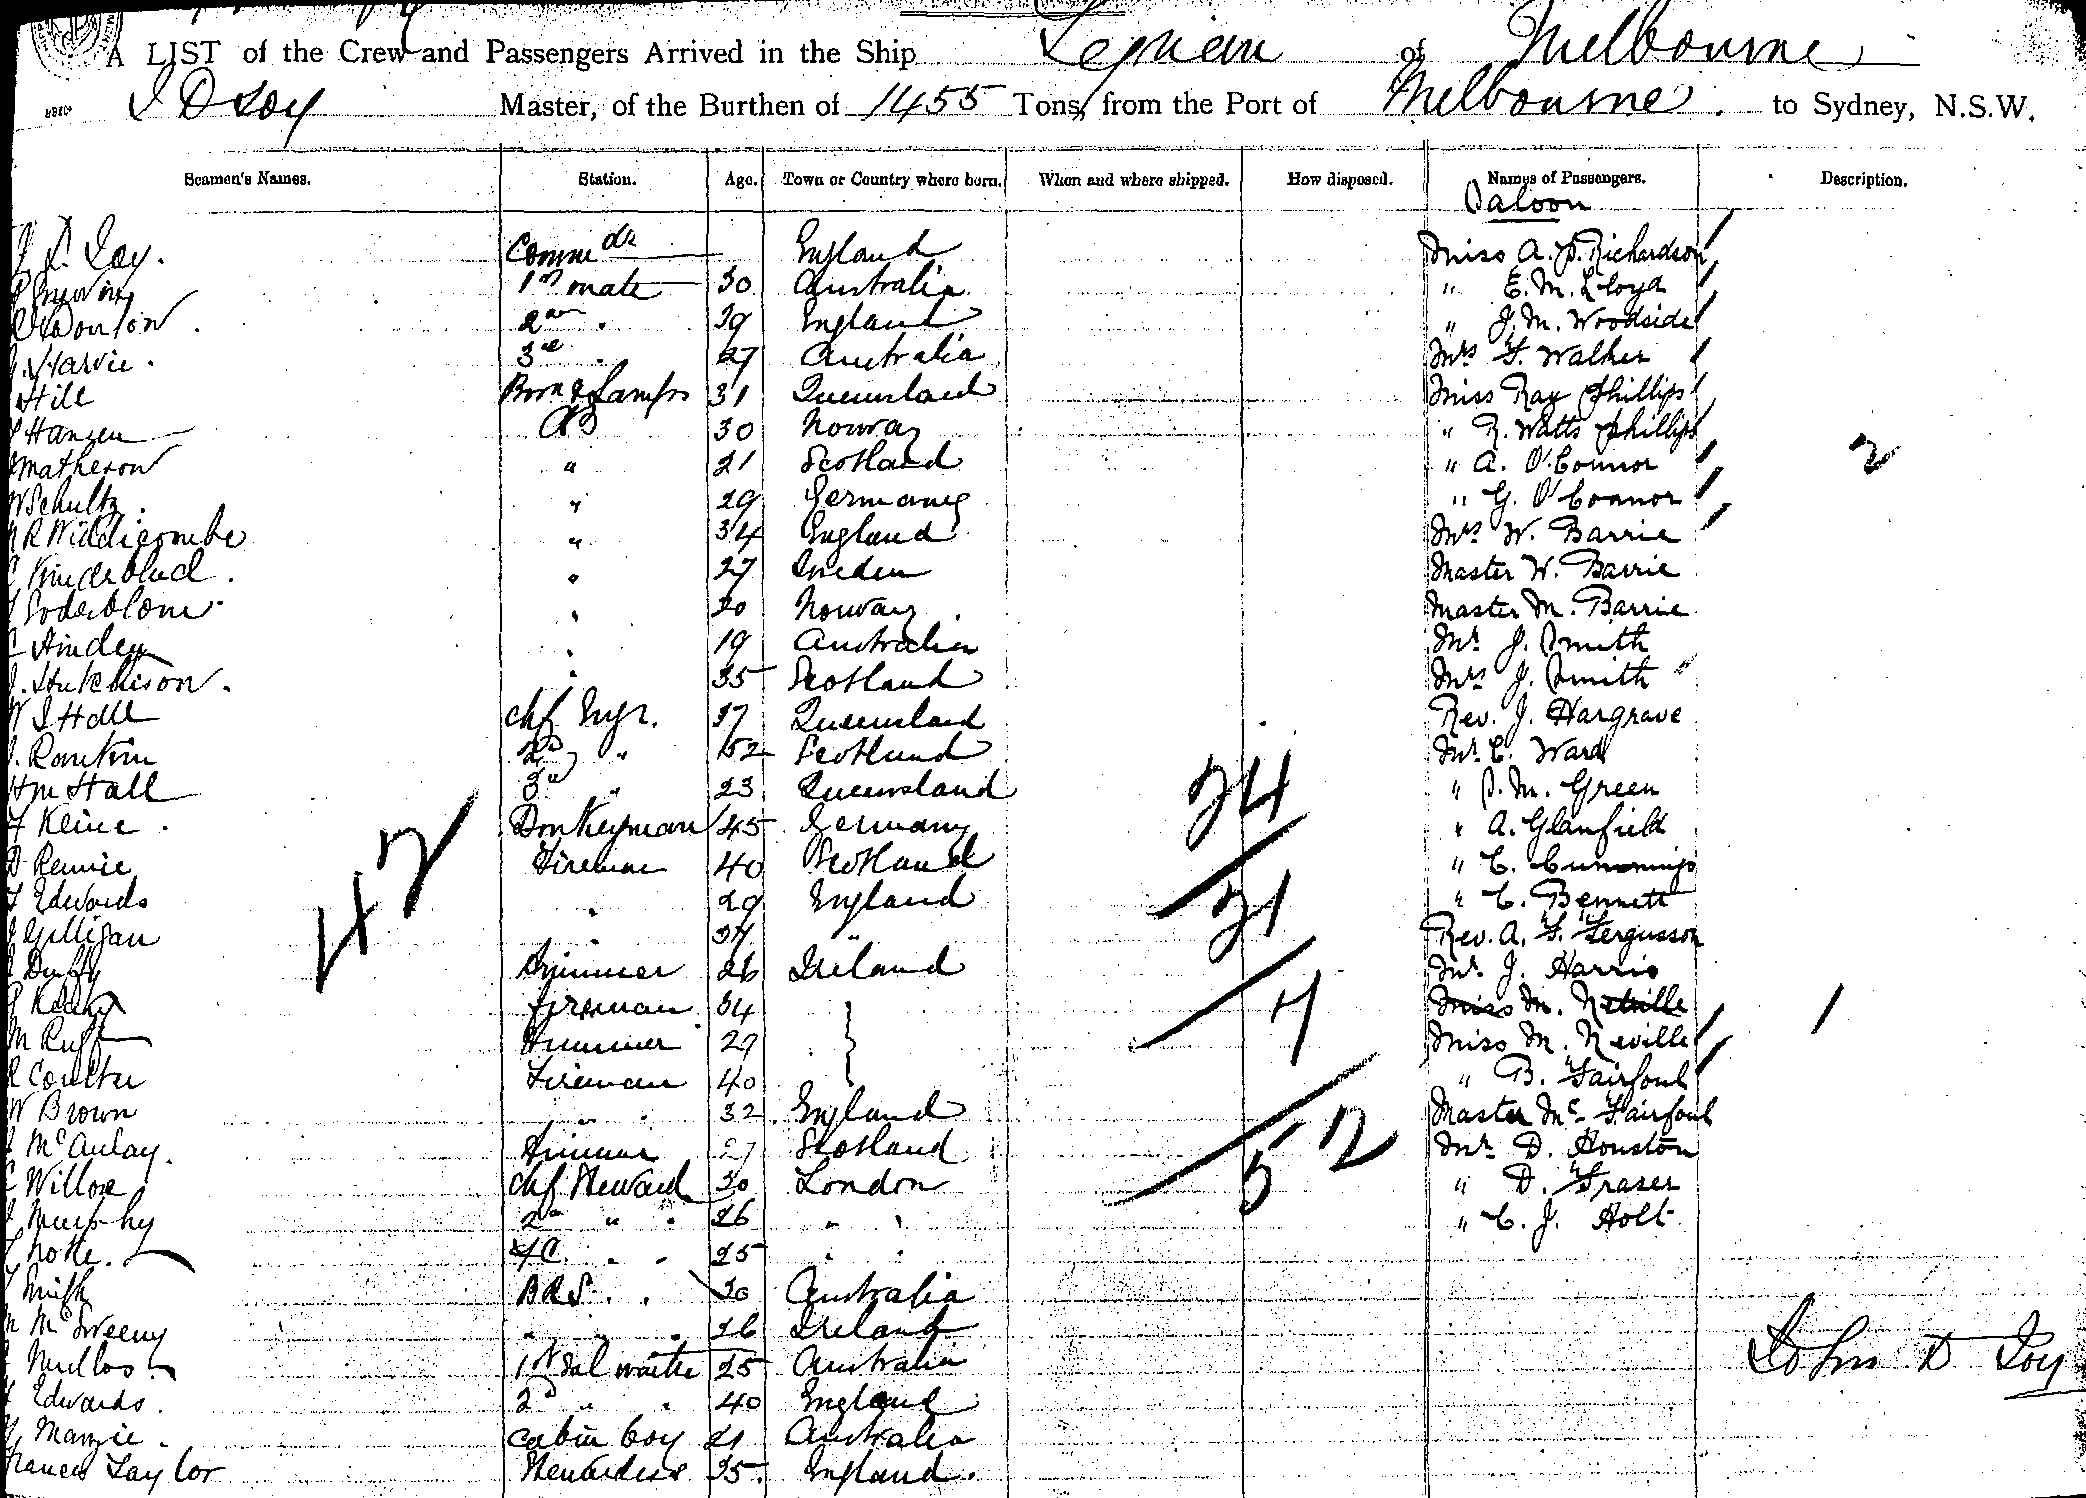 A LIST of the Crew and Passengers Arrived in the Ship of Melbourne
Master, of the Burthen of 1455 Tons, from the Port of Melbourne to Sydney, N.S.W.
Seamen's Names. Station. Age. Town or Country where born. When and where shipped. How disposed. Names of Passengers. Description.
Saloon
Comm dr England Miss A. S. Richardson
1st mate 30 Australia " E. M. Lloyd
2nd 39 England " J. M. Woodside
Harvie. 3rd 27 Australia Mrs F. Walker
Hill Bosn & Lamps 31 Queensland Miss Ray Phillips
Hansen AB 30 Norway " R. Watts Phillips
Matheson " 21 Scotland " A. O'Connor 2
W Schultz. " 29 Germany " G. O'Connor
R Widdicombe " 34 England Mrs W. Barrie
" 27 Sweden Master W. Barrie
Soderblom " 20 Norway Master M. Barrie
Hinden " 19 Australia Mr. J. Smith
J. Hutchison. " 35 Scotland Mrs J. Smith
Hall chf Engr. 37 Queensland Rev. J. Hargrave
J. Rankin 2nd " 52 Scotland Mr. C. Ward
Hall 3rd " 23 Queensland " S. M. Green
24
Keine. Donkeyman 45 Germany " A. Glanfield
42
Rennie Fireman 40 Scotland " C. Cummings
Edwards " 29 England " C. Bennett
31
Gilligan " 37 " Rev. A. F. Fergusson
Duffy Trimmer 26 Ireland Mr. J. Harris
fireman 34 Miss M. Netville
7 1
M Ruff Trimmer 27 Miss M. Neville
Coulter Fireman 40 " B. Fairfoul
W Brown " 32 England Master Mc Fairfoul
52
McAulay. Trimmer 27 Scotland Mr D. Houston
Willox Chf Steward 30 London " D. Fraser
Murphy 2nd " 26 " " C. J. Holt
25
Smith BRS 20 Australia
McSweeny " 26 Ireland
1st Sal waiter 25 Australia John D Loy
Edwards. 2nd " 40 England
Manzie. Cabin boy 21 Australia
Frances Taylor Stewardess 35. England.